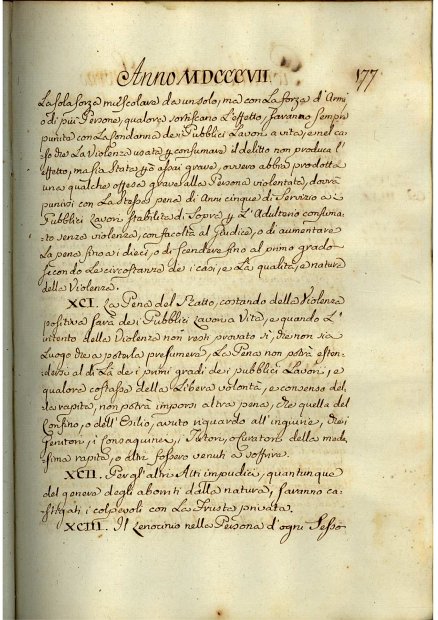 Anno MDCCCVII. 177
La sola forza muscolare da un solo, ma con La forza d'Armi
o di più Persone, qualora sortiscano L'effetto, saranno sempre
punite con La Condanna de i Pubblici Lavori a vita, e nel ca-
so che La Violenza usata p consumare il delitto non produca l'
effetto, ma sia stata p ò assai grave, ovvero abbia prodotta
una qualche offesa grave alla Persona violentata, dovrà
punirsi con La stessa pena di Anni cinque di Servizio a i
Pubblici Lavori stabilita di Sopra p L'Adulterio consuma-
to senza violenza, con facoltà al Giudice, o di aumentare
La pena fino a i dieci, o di scendere fino al primo grado
secondo Le circostanze de i casi, e La qualità, e natura
della Violenza.
XCI. La Pena del Ratto, costando della Violenza
positiva sarà de i Pubblici Lavori a Vita, e quando L'
intento della Violenza non resti provato sì, che non sia
Luogo che a poterla presumere, La Pena non potrà esten-
dersi al di Là de i primi gradi de i pubblici Lavori, e
qualora costasse della Libera volontà, e consenso del-
la rapita, non potrà imporsi altra pena, che quella del
Confino, o dell'Esilio, avuto riguardo all'ingiurie, che i
Genitori, i consaguinei, i Tutori, o Curatori della mede-
sima rapita, o altri fossero venuti a soffrire.
XCII. Per gl'altri Atti impudici, quantunque
del genere degli aborriti dalla natura, saranno ca-
stigati i colpevoli con La Frusta privata.
XCIII. Il Lenocinio nella Persona d'ogni Sesso